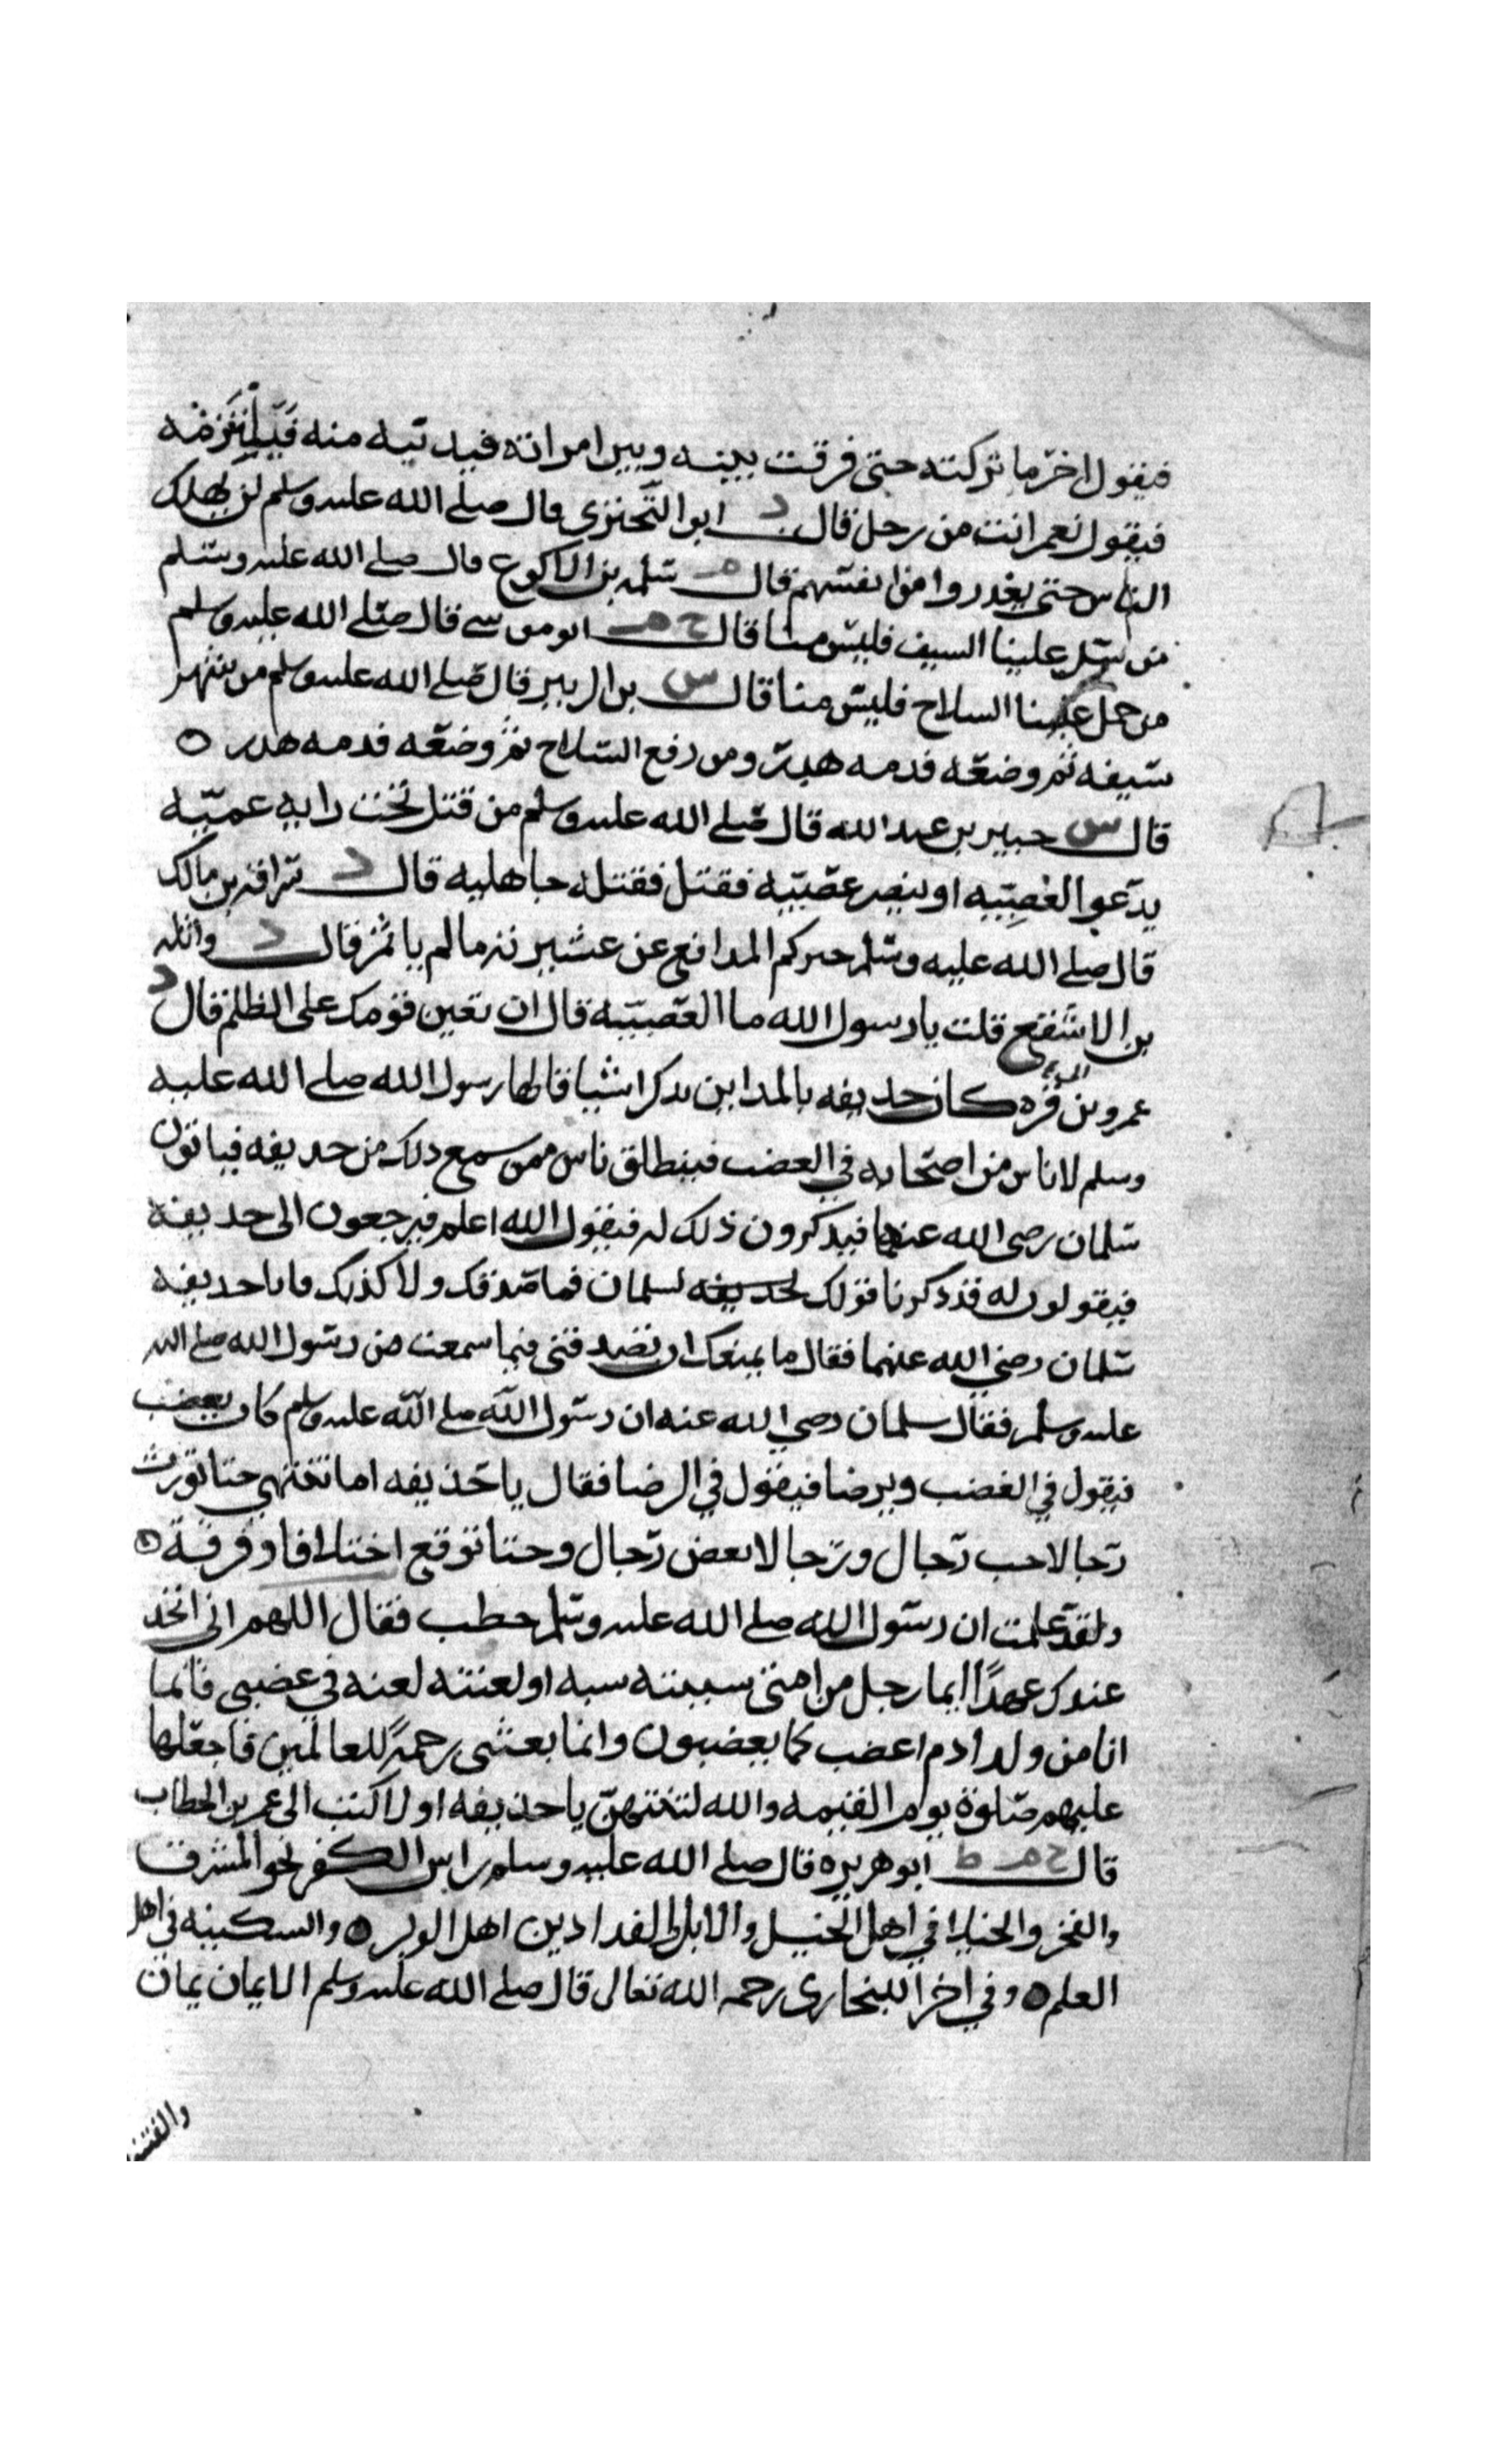 فيقول اخر ما تركته حتى فرقت بينه وبين امراته فيدنيه منه فيلتزمه
فيقول نعم انت من رجل قال د ابو البحتري قال صلى الله عليه وسلم لن يهلك
الناس حتى يغدروا من انفسهم قال م سلمه بن الاكوع قال صلى الله عليه وسلم
من سل علينا السيف فليس منا قال خ م ابو موسى قال صلى الله عليه وسلم
من حمل علينا السلاح فليس منا قال س بن الزبير قال صلى الله عليه وسلم من شهر
سيفه ثم وضعه فدمه هدر ومن رفع السلاح ثم وضعه فدمه هدر ٥
قال س جبير بن عبد الله قال صلى الله عليه وسلم من قتل تحت رايه عميه
يدعوا العصبيه او ينصر عصبيه فقتل فقتله جاهليه قال د سراقه بن مالك
قال صلى الله عليه وسلم خيركم المدافع عن عشيرته ما لم ياثم قال د واثله
بن الاسقع قلت يا رسول الله ما العصبيه قال ان تعين قومك على الظلم قال د
عمرو بن قره كان حذيفه بالمداين يذكر اشيا قالها رسول الله صلى الله عليه
وسلم لاناس من اصحابه في الغضب فينطلق ناس ممن سمع ذلك من حذيفه فياتون
سلمان رضي الله عنهما فيذكرون ذلك له فيقول الله اعلم فيرجعون الى حذيفه
فيقولون له قد ذكرنا قولك لحذيفه لسلمان فما صدقك ولا كذبك فاتا حذيفه
سلمان رضي الله عنهما فقال ما يمنعك ان تصدقني فيما سمعت من رسول الله صلى الله
عليه وسلم فقال سلمان رضي الله عنه ان رسول الله صلى الله عليه وسلم كان يغضب
فيقول في الغضب ويرضا فيقول في الرضا فقال يا حذيفه اما تنتهي حتا تورث
رجالا حب رجال ورجالا بغض رجال وحتا توقع اختلافا وفرقة ٥
ولقد علمت ان رسول الله صلى الله عليه وسلم خطب فقال اللهم اني اتخذ
عندك عهدًا ايما رجل من امتي سببته سبه او لعنته لعنه في غضبي فانما
انا من ولد ادم اغضب كما يغضبون وانما بعثني رحمةً للعالمين فاجعلها
عليهم صلوة يوم القيمه والله لتنتهين يا حذيفه او لا كتبن الى عمر بن الخطاب
قال خ م ط ابو هريره قال صلى الله عليه وسلم راس الكفر نحو المشرق
والفخر والخيلا في اهل الخيل والابل الفدادين اهل الوبر ٥ والسكينه في اهل
العلم ٥ وفي اخر اللبخاري رحمه الله تعالى قال صلى الله عليه وسلم الايمان يمان